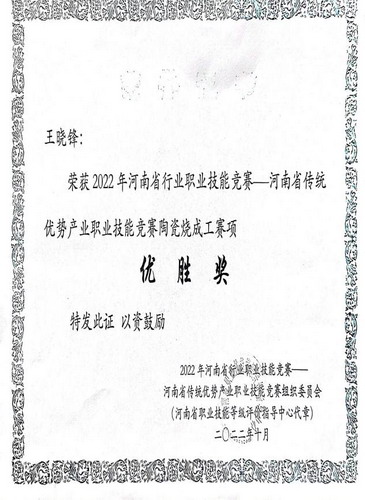 王晓锋：
荣获2022年河南省行业职业技能竞赛——河南省传统
优势产业职业技能竞赛陶瓷烧成工赛项
优胜奖
特发此证 以资鼓励
2022年河南省行业职业技能竞赛——
河南省传统优势产业职业技能竞赛组织委员会
（河南省职业技能等级评价指导中心代章）
二〇二二年十月